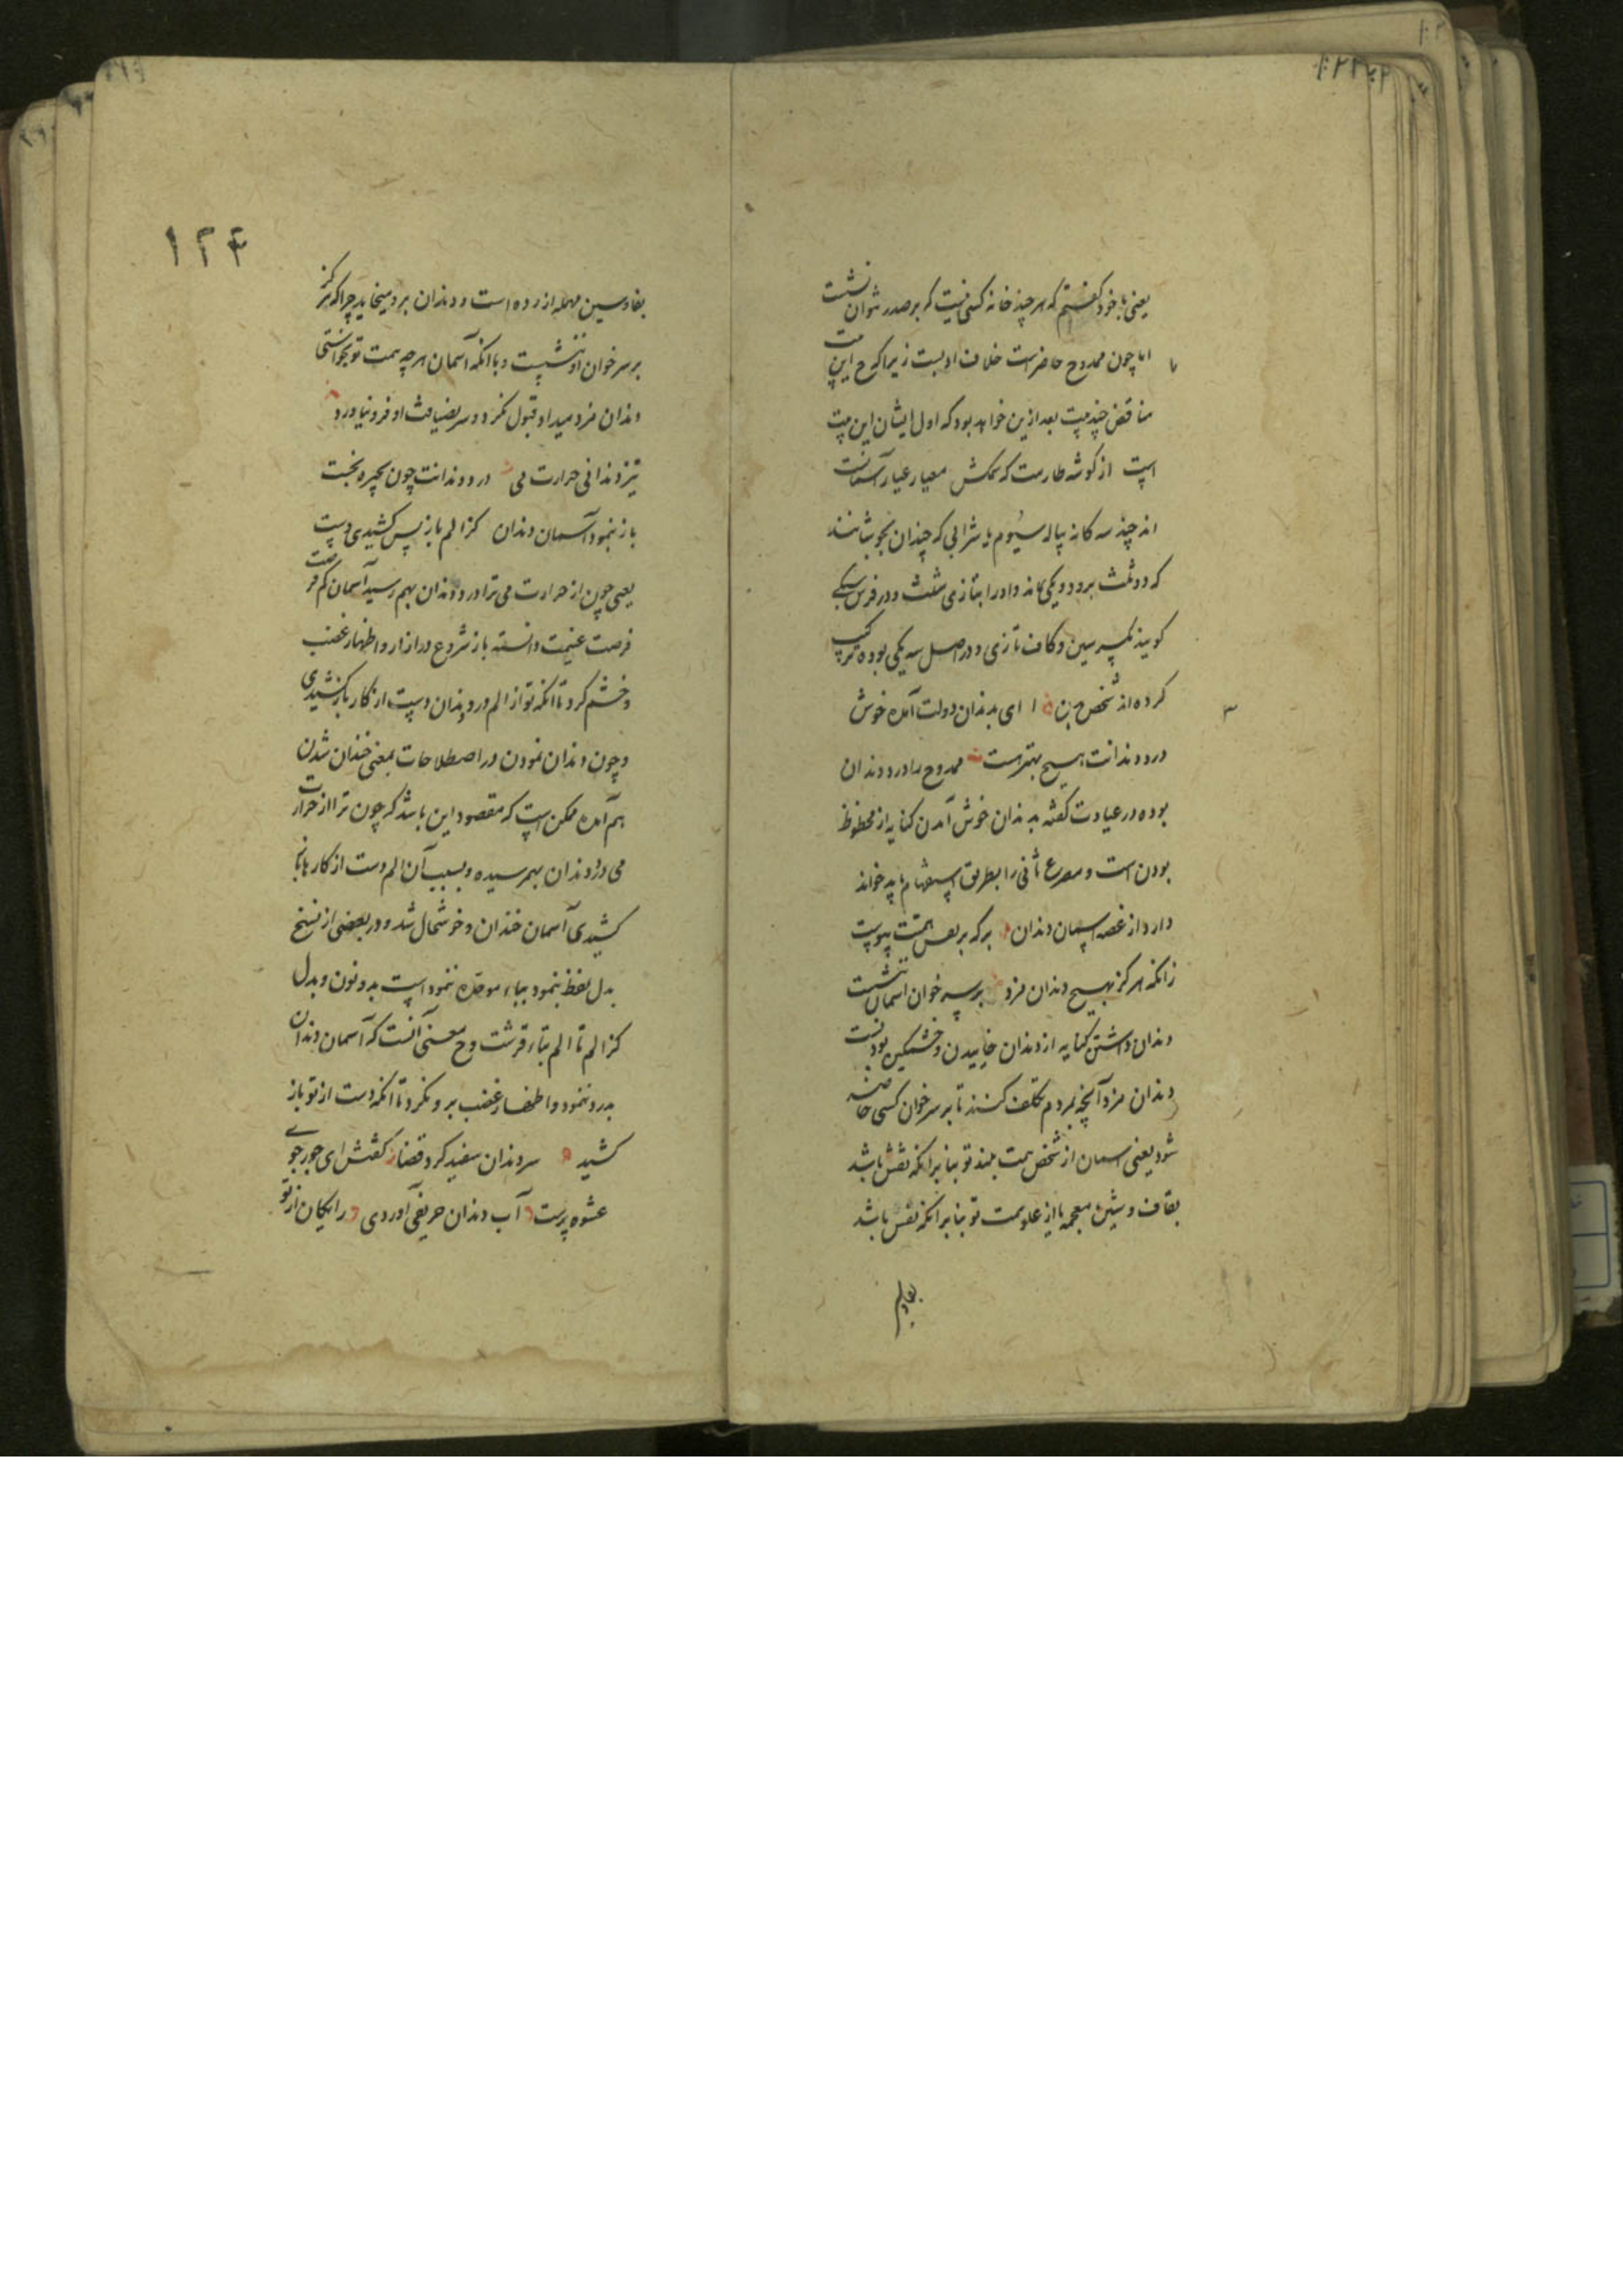 یعنی با خود گفتم که هر چند خانه کسی نیست که بر صدر توان نشست
اما چون ممدوح حاضرست خلاف ادبست زیرا که ح این
مناقض چند بیت بعد ازین خواهد بود که اول ایشان این بیت
است از گوشه طارمت که سمکش معیار عیار آسمانست
اند چند سه کانه پیاله سیوم یا شرابی که چندان بجوشانند
که دو ثلث برود و یکی ماند و او را بتازی مثلث و در فرس سیکی
گویند بکسر سین و کاف تازی و در اصل سه یکی بوده ترکیب
کرده اند شخص ای بدندان دولت آمده خوش
درد دندانت هیچ بهترست ممدوح را درد دندان
بوده در عیادت گفته بدندان خوش آمدن کنایه از محظوظ
بودن است و مصرع ثانی را بطریق استفهام باید خواند
دارد از غصه آسمان دندان بر که بر همت پیوست
زانکه هرگز بهیچ دندان مزد بر سر خوان آسمان ننشست
دندان داشتن کنایه از دندان خاییدن و خشمگین بودنست
دندان مزد آنچه بمردم تکلف کنند تا بر سر خوان کسی حاضر
شود یعنی آسمان از شخص همت بلند تو بنا بر آنکه نقش باشد
بقاف و شین معجمه یا از علو همت تو بنا بر آنکه نفس باشد
بفاء و سین
۱۲۴
بفا و سین مهمله ازرده است و دندان برو میخاید چرا که هرگز
بر سر خوان او ننشست و با آنکه آسمان هر چه همت تو بخواستی
دندان مزد میداد قبول نکرد و سر بضیافت او فرو نیاورد
تیز دندانی حرارت می درد دندانت چون بچهره بخست
باز بنمود آسمان دندان کز الم باز پس کشیدی دست
یعنی چون از حرارت می ترا درد دندان بهم رسید آسمان کم فرصت
فرصت غنیمت دانسته باز شروع در ازار و اظهار غضب
و خشم کرد تا آنکه تو از الم درد دندان دست از کار باز کشیدی
و چون دندان نمودن در اصطلاحات بمعنی خندان شدن
هم آمده ممکن است که مقصود این باشد که چون ترا از حرارت
می درد دندان بهمرسیده و بسبب آن الم دست از کارها باز
کشیدی آسمان خندان و خوشحال شد و در بعضی از نسخ
بدل لفظ بنمود بباء موحده ننمود است بدو نون و بدل
کز الم تا الم بتاء قرشت و ح معنی آنست که آسمان دندان
بدرد ننمود و اظهار غضب برو نکرد تا آنکه دست از تو باز
کشید سر دندان سفید کرد قضا گفتش ای جور جوی
عشوه پرست آب دندان حریفی آوردی رایگان از تو